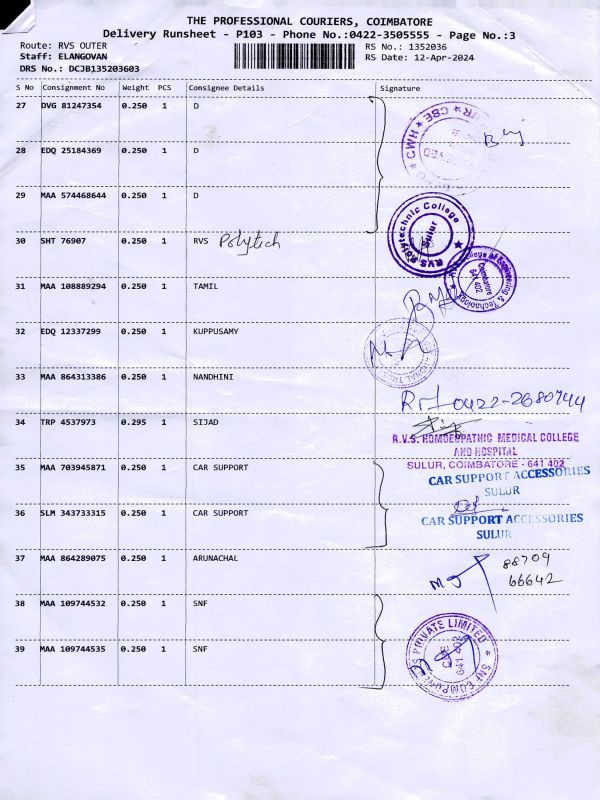 THE PROFESSIONAL COURIERS, COIMBATORE
Delivery Runsheet - P103 - Phone No.:0422-3505555 - Page No.:3
Route: RVS OUTER
RS No.: 1352036
Staff: ELANGOVAN
RS Date: 12-Apr-2024
DRS No.: DCJB135203603
S No Consignment No Weight PCS Consignee Details Signature
27 DVG 81247354 0.250 1 D
28 EDQ 25184369 0.250 1 D
29 MAA 574468644 0.250 1 D
30 SHT 76907 0.250 1 RVS Polytech
RVS Polytechnic College
Sulur
31 MAA 108889294 0.250 1 TAMIL
College of Engineering & Technology
Coimbatore
641 402
32 EDQ 12337299 0.250 1 KUPPUSAMY
33 MAA 864313386 0.250 1 NANDHINI
0422-2680744
34 TRP 4537973 0.295 1 SIJAD
R.V.S. HOMOEOPATHIC MEDICAL COLLEGE
AND HOSPITAL
SULUR, COIMBATORE - 641 402
35 MAA 703945871 0.250 1 CAR SUPPORT
CAR SUPPORT ACCESSORIES
SULUR
36 SLM 343733315 0.250 1 CAR SUPPORT
CAR SUPPORT ACCESSORIES
SULUR
37 MAA 864289075 0.250 1 ARUNACHAL
88709
66642
38 MAA 109744532 0.250 1 SNF
39 MAA 109744535 0.250 1 SNF
PRIVATE LIMITED
CBE
641 402